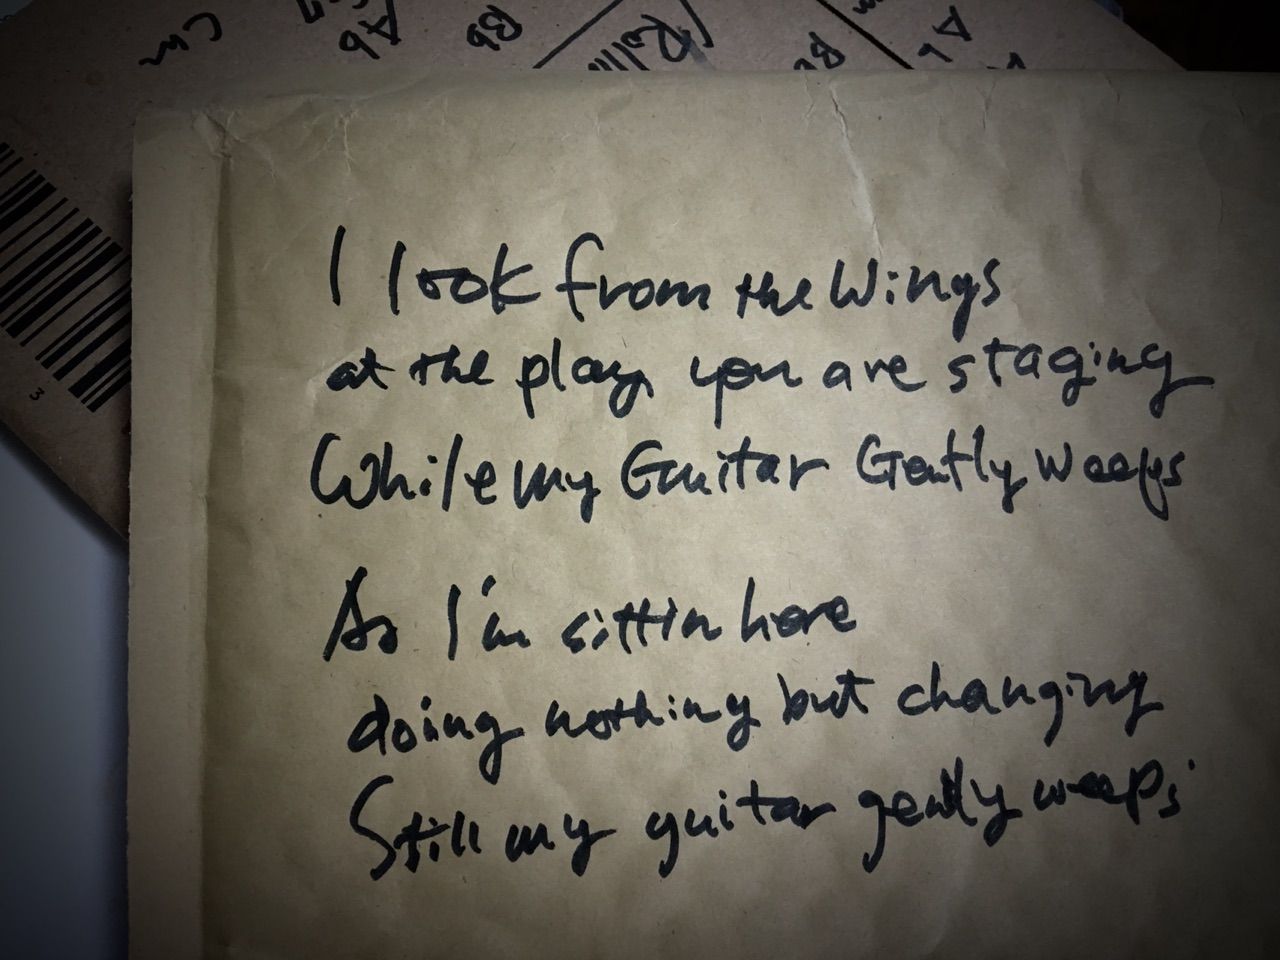 Cm
Ab
Bb
Ab
3
I look from the Wings
at the play you are staging
While my Guitar Gently weeps
As I'm sittin here
doing nothing but changing
Still my guitar gently weeps